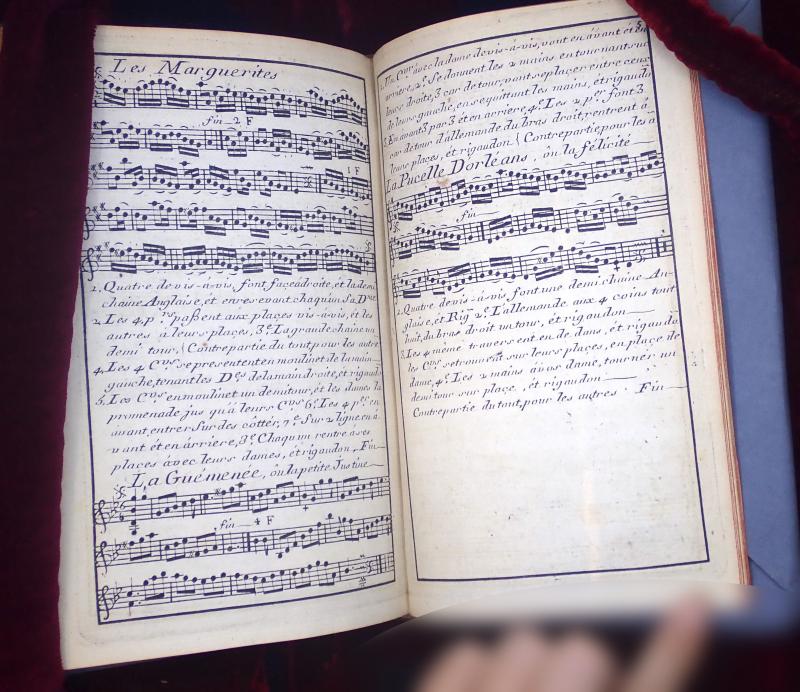 Les Marguerites
fin 2 F
1 F
1. Quatre de vis-à-vis, font face à droite, et la demi
chaine Anglaise, et en resevant chaqu'un Sa D.me
2. Les 4 p.rs passent aux places vis-à-vis, ét les
autres à leurs places, 3.e La grande chaîne un
demi tour, (Contrepartie du tout, pour les autre
4. Les 4 C.rs se presentent en moulinet de la main
gauche, tenant les D.es de la main droite, ét rigaud
5. Les C.rs en moulinet un demi tour, ét les dames la
promenade jus qu'à leurs C.rs 6.e Les 4 p.rs en
avant, entrer sur des côtter, 7.e Sur 2 ligne en a
vant ét en àrriere, 3.e Chaqu'un rentre à ses
places àvec leurs dames, ét rigaudon, Fin
La Guémenée, oû la petite Justine
fin 4 F
5
Un C.er avec la dame de vis-à-vis, vont en àvant ét en
arriere, 2.e Se donnent les 2 mains en tournant sur
leurs droite, 3 car de tour, vont se placer entre ceux
de leurs gauche, en se quittant les mains, ét rigaudo
3. En avant 3 par 3 ét en àrriere, 4.e Les 2 p.er font 3
car de tour d'allemande du bras droit, rentrent à
leurs places, ét rigaudon (Contrepartie pour les a
La Pucelle Dorléans, oû la félicité
fin
1. Quatre de vis-à-vis, font une demi chaîne An-
glaise, ét Rig.n 2.e L'allemande aux 4 coins tout
huit, du bras droit un tour, ét rigaudon
3. Les 4 même traversent en de dans, ét rigaudo
les C.rs se trouvent sur leurs places, en place de
dame, 4.e Les 2 mains à vos dame, tournés un
demi tour sur place, ét rigaudon
Contrepartie du tout, pour les autres Fin